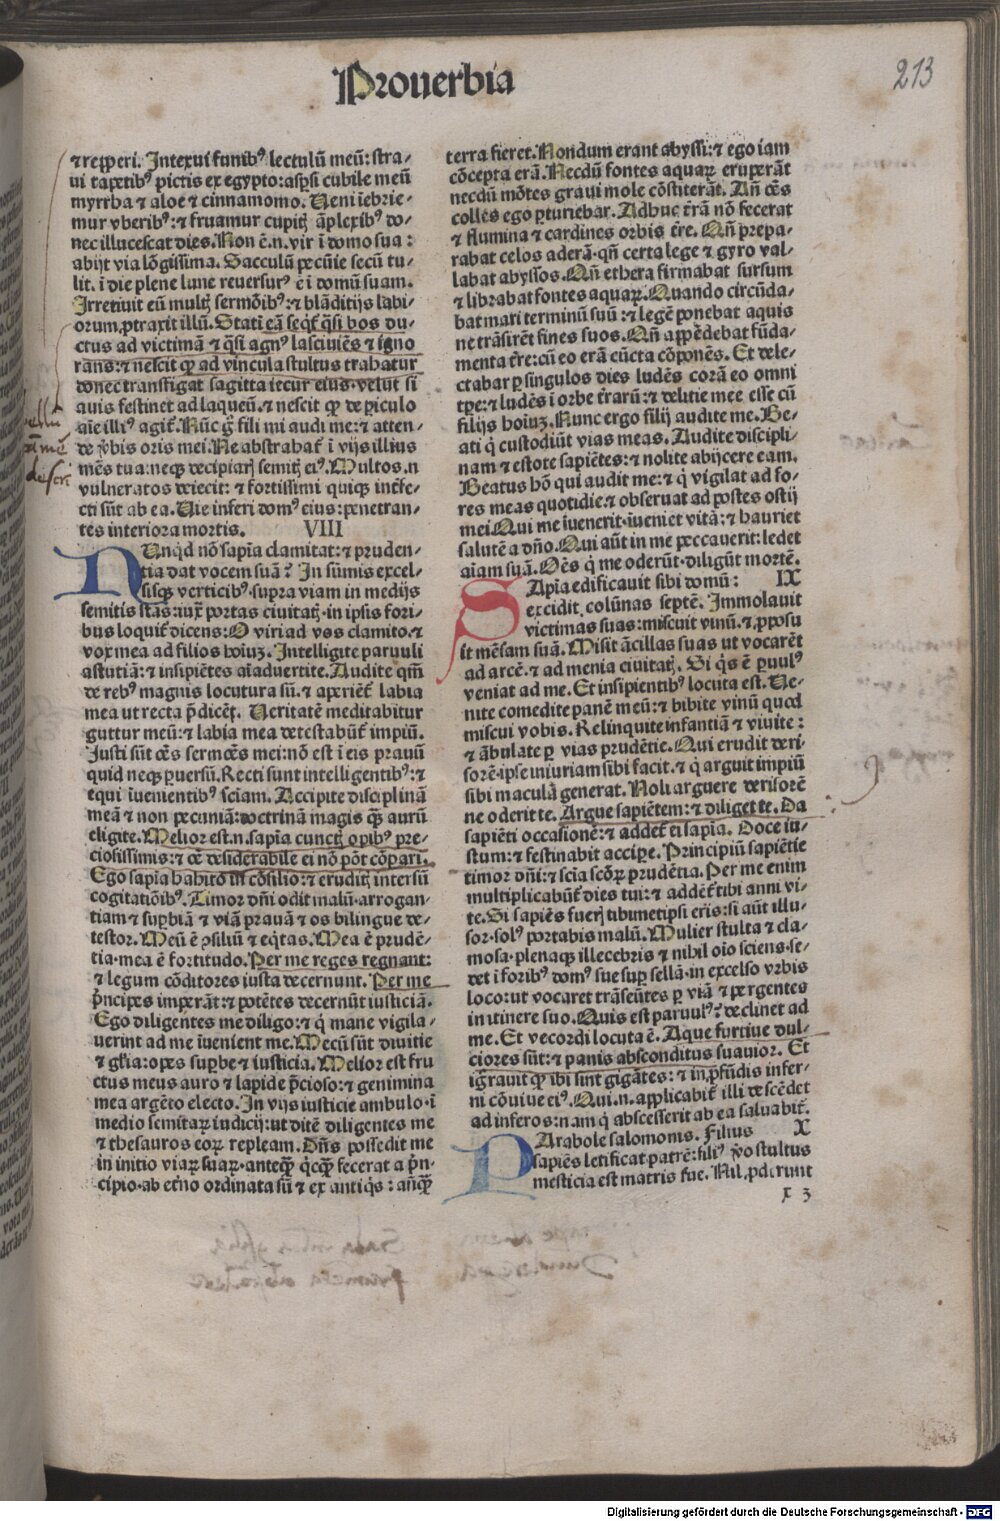 Prouerbia
213
⁊ reꝑperi. Intexui funib⁹ lectulū meū: stra⸗
ui tapetib⁹ pictis ex egypto: aspsi cubile meū
myrrha ⁊ aloe ⁊ cinnamomo. Ueni iebrie⸗
mur vberib⁹: ⁊ fruamur cupitꝭ āplexib⁹ do⸗
nec illucescat dies. Non ē.n. vir ī domo sua:
abijt via lōgissima. Sacculū pecūie secū tu⸗
lit. ī die plene lune reuersur⁹ ē ī domū suam.
Irretiuit eū multꝭ sermōib⁹: ⁊ blādicijs labi⸗
orum ꝓtraxit illū. Statī eā seqt̄ q̄si bos du⸗
ctus ad victimā ⁊ q̄si agn⁹ lasciuiēs ⁊ igno
rans: ⁊ nescit ꝙ ad vincula stultus trahatur
donec transfigat sagitta iecur eius. velut si
auis festinet ad laqueū. ⁊ nescit ꝙ de piculo
aīe illi⁹ agit̄. Nūc g̊ fili mi audi me: ⁊ atten⸗
de v̓bis oris mei. Ne abstrahat̄ ī vijs illius
mēs tua: neqꝫ decipiarꝭ semitꝭ ei⁹. Multos.n
vulneratos deiecit: ⁊ fortissimi quiqꝫ int̄fe⸗
cti sūt ab ea. Uie inferi dom⁹ eius: penetran⸗
tes interiora mortis. VIII
NUnqd nō sapīa clamitat: ⁊ pruden⸗
tia dat vocem suā? In sūmis excel⸗
sisqꝫ verticib⁹. supra viam in medijs
semitis stās: iuxᵃ portas ciuitatꝭ. in ipsis fori⸗
bus loquit̄ dicens: O viri ad vos clamito. ⁊
vox mea ad filios hoīuꝫ. Intelligite paruuli
astutiā: ⁊ insipiētes aīaduertite. Audite qm̄
de reb⁹ magnis locutura sū. ⁊ aperiēt̄ labia
mea ut recta p̄dicēt. Ueritatē meditabitur
guttur meū: ⁊ labia mea detestabūt̄ impiū.
Justi sūt oēs sermōes mei: nō est ī eis prauū
quid neqꝫ puersū. Recti sunt intelligentib⁹: ⁊
equi īuenientib⁹ sciam. Accipite disciplinā
meā ⁊ non pecuniā: doctrinā magis ꝙ̄ aurū
eligite. Melior est.n. sapīa cunctꝭ opib⁹ pre⸗
ciosissimis: ⁊ oē desiderabile ei nō pōt cōpari.
Ego sapīa habito in cōsilio: ⁊ eruditꝭ intersū
cogitatiōib⁹. Timor dn̄i odit malū. arrogan⸗
tiam ⁊ supbiā ⁊ viā prauā ⁊ os bilingue de⸗
testor. Meū ē ꝯsiliū ⁊ eqtas. Mea ē prudē⸗
tia. mea ē fortitudo. Per me reges regnant:
⁊ legum cōditores iusta decernunt. Per me
p̄ncipes imperāt: ⁊ potētes decernūt iusticiā.
Ego diligentes me diligo: ⁊ q̇ mane vigila⸗
uerint ad me īuenient me. Mecū sūt diuitie
⁊ gl̄ia: opes supbe ⁊ iusticia. Melior est fru
ctus meus auro ⁊ lapide p̄cioso: ⁊ genimina
mea argēto electo. In vijs iusticie ambulo. ī
medio semitaꝝ iudicij: ut ditē diligentes me
⁊ thesauros eoꝝ repleam. Dn̄s possedit me
in initio viaꝝ suaꝝ. anteꝙ̄ qcꝙ̄ fecerat a pn̄⸗
cipio. ab et̓no ordinata sū ⁊ ex antiq̇s: an̄ꝙ̄
terra fieret. Nondum erant abyssi: ⁊ ego iam
cōcepta erā. Necdū fontes aquaꝝ eruperāt
necdū mōtes graui mole cōstiterāt. An̄ oēs
colles ego pturiebar. Adhuc t̄rā nō fecerat
⁊ flumina ⁊ cardines orbis t̄re. Qn̄ prepa⸗
rabat celos aderā. qn̄ certa lege ⁊ gyro val⸗
labat abyssos. Qn̄ ethera firmabat sursum
⁊ librabat fontes aquaꝝ. Quando circūda⸗
bat mari terminū suū: ⁊ legē ponebat aquis
ne trāsirēt fines suos. Qn̄ appēdebat fūda⸗
menta t̄re: cū eo erā cūcta cōponēs. Et dele⸗
ctabar p singulos dies ludēs corā eo omni
tpe: ⁊ ludēs ī orbe t̄rarū: ⁊ delitie mee esse cū
filijs hoīuꝫ. Nunc ergo filij audite me. Be⸗
ati q̇ custodiūt vias meas. Audite discipli⸗
nam ⁊ estote sapiētes: ⁊ nolite abijcere eam.
Beatus hō qui audit me: ⁊ q̇ vigilat ad fo⸗
res meas quotidie ⁊ obseruat ad postes ostij
mei. Qui me īuenerit. īueniet vitā: ⁊ hauriet
salutē a dn̄o. Qui aūt in me peccauerit: ledet
aīam suā. Oēs q̇ me oderūt. diligūt mortē.
SApīa edificauit sibi domū: IX
excidit colūnas septē. Immolauit
victimas suas: miscuit vinū. ⁊ ꝓposu
it mēsam suā. Misit ācillas suas ut vocarēt
ad arcē. ⁊ ad menia ciuitatꝭ. Si q̇s ē puul⁹
veniat ad me. Et insipientib⁹ locuta est. Ue⸗
nite comedite panē meū: ⁊ bibite vinū quod
miscui vobis. Relinquite infantiā ⁊ viuite:
⁊ ābulate p vias prudētie. Qui erudit deri⸗
sorē. ipse iniuriam sibi facit. ⁊ q̇ arguit impiū
sibi maculā generat. Noli arguere derisorē
ne oderit te. Argue sapiētem: ⁊ diliget te. Da
sapiēti occasionē: ⁊ addet̄ ei sapīa. Doce iu⸗
stum: ⁊ festinabit accipe. Principiū sapiētie
timor dn̄i: ⁊ scīa scōꝝ prudētia. Per me enim
multiplicabūt̄ dies tui: ⁊ addēt̄ tibi anni vi⸗
te. Si sapiēs fuerꝭ tibimetipsi eris: si aūt illu⸗
sor. sol⁹ portabis malū. Mulier stulta ⁊ cla⸗
mosa. plenaqꝫ illecebris ⁊ nihil oīo sciens. se⸗
det ī forib⁹ dom⁹ sue sup sellā. in excelso vrbis
loco: ut vocaret trāseūtes p viā ⁊ pergentes
in itinere suo. Quis est paruul⁹? declinet ad
me. Et vecordi locuta ē. Aque furtiue dul⸗
ciores sūt: ⁊ panis absconditus suauior. Et
ig̊rauit ꝙ ibi sint gigātes: ⁊ in ꝓfūdis infer⸗
ni cōuiue ei⁹. Qui.n. applicabit̄ illi descēdet
ad inferos: nam q̇ abscesserit ab ea saluabit̄.
PArabole salomonis. Filius X
sapiēs letificat patrē: fili⁹ v̓o stultus
mesticia est matris sue. Nil ꝓderunt
x 3
Digitalisierung gefördert durch die Deutsche Forschungsgemeinschaft - DFG